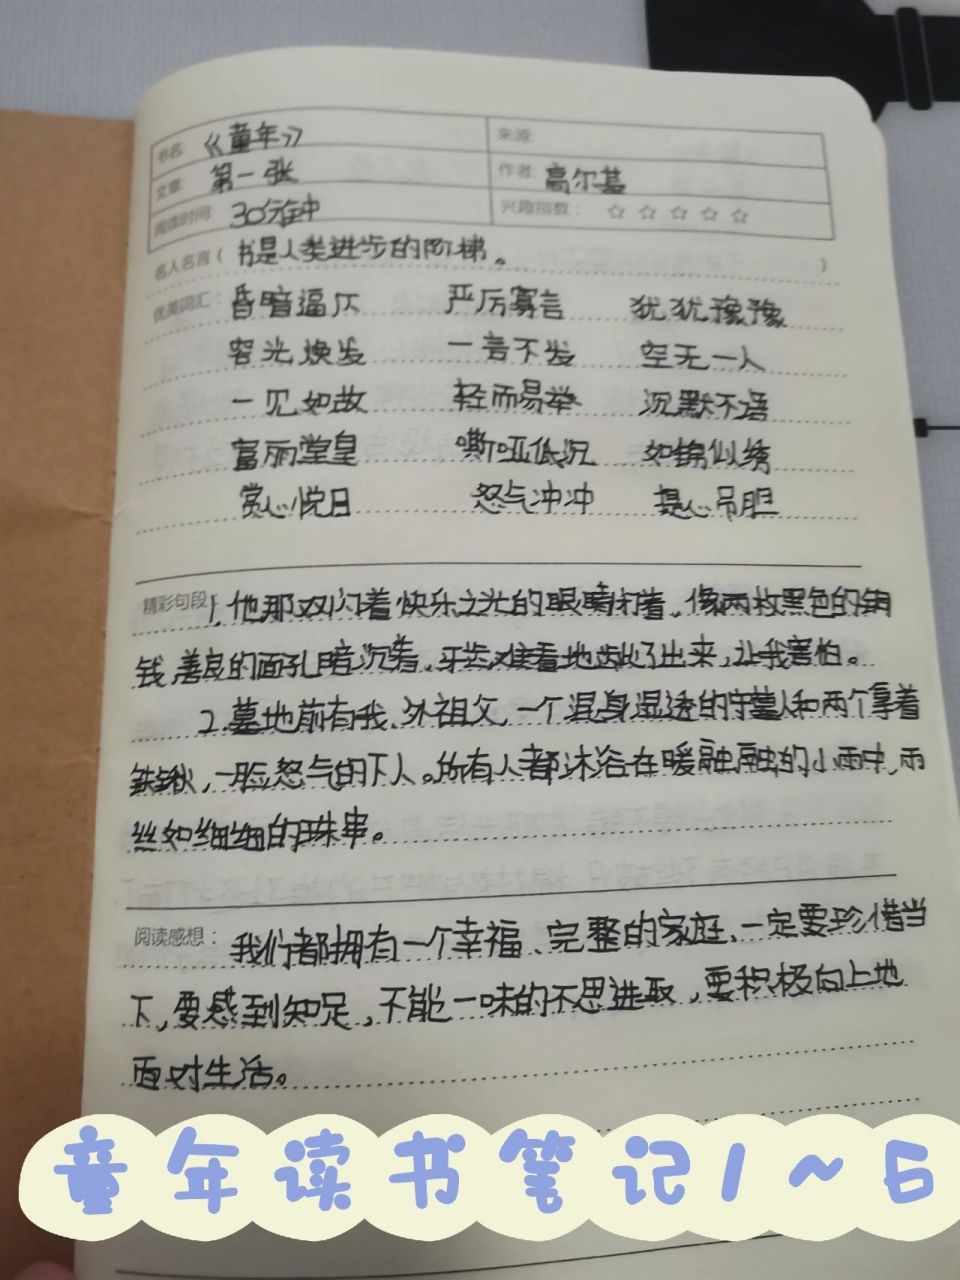 书名: 《童年》 来源:
文章: 第一张 作者: 高尔基
阅读时间: 30分钟 兴趣指数: ☆ ☆ ☆ ☆ ☆
名人名言( 书是人类进步的阶梯。 )
优美词汇: 昏暗逼仄 严厉寡言 犹犹豫豫
容光焕发 一言不发 空无一人
一见如故 轻而易举 沉默不语
富丽堂皇 嘶哑低沉 如锦似绣
赏心悦目 怒气冲冲 提心吊胆
精彩句段: 1. 他那双闪着快乐之光的眼睛闭着,像两枚黑色的铜
钱,善良的面孔暗沉着,牙齿难看地龇了出来,让我害怕。
2.墓地前有我、外祖父、一个浑身湿透的守墓人和两个拿着
铁锹,一脸怒气的下人。所有人都沐浴在暖融融的小雨中,雨
丝如细细的珠串。
阅读感想: 我们都拥有一个幸福、完整的家庭,一定要珍惜当
下,要感到知足,不能一味的不思进取,要积极向上地
面对生活。
童年读书笔记1~6